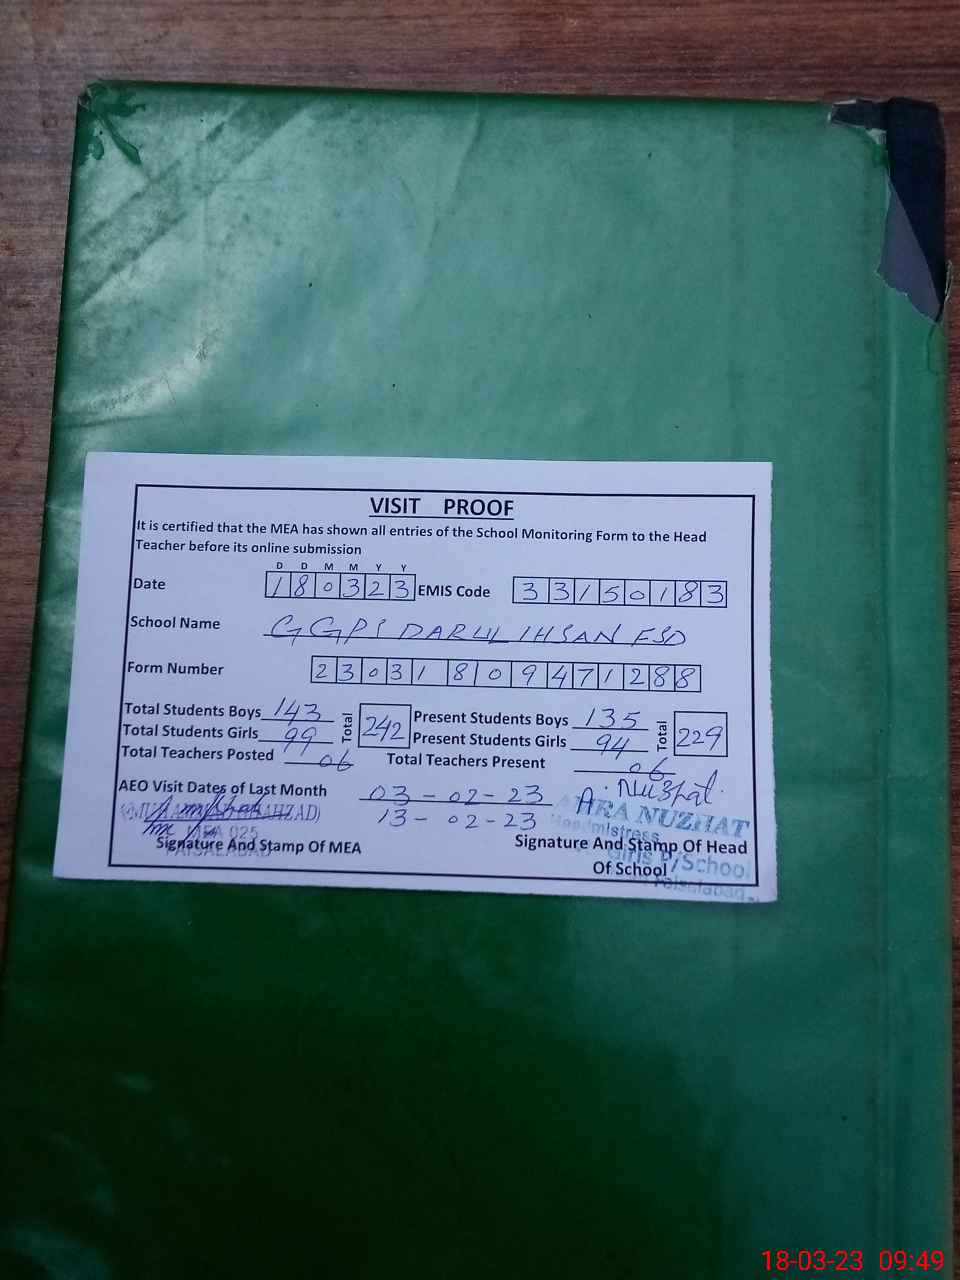 VISIT PROOF
It is certified that the MEA has shown all entries of the School Monitoring Form to the Head
Teacher before its online submission
D D M M Y Y
Date 1 8 0 3 2 3 EMIS Code 3 3 1 5 0 1 8 3
School Name GGPS DARUL IHSAN FSD
Form Number 2 3 0 3 1 8 0 9 4 7 1 2 8 8
Total Students Boys 143 Total 242 Present Students Boys 135 Total 229
Total Students Girls 99 Present Students Girls 94
Total Teachers Posted 06 Total Teachers Present 06
AEO Visit Dates of Last Month 03-02-23 A. Nuzhat
13-02-23
NUZHAT
Headmistress
MEA 025
Signature And Stamp Of MEA
FAISALABAD
Signature And Stamp Of Head
Of School
Girls P/School
Faisalabad
18-03-23 09:49